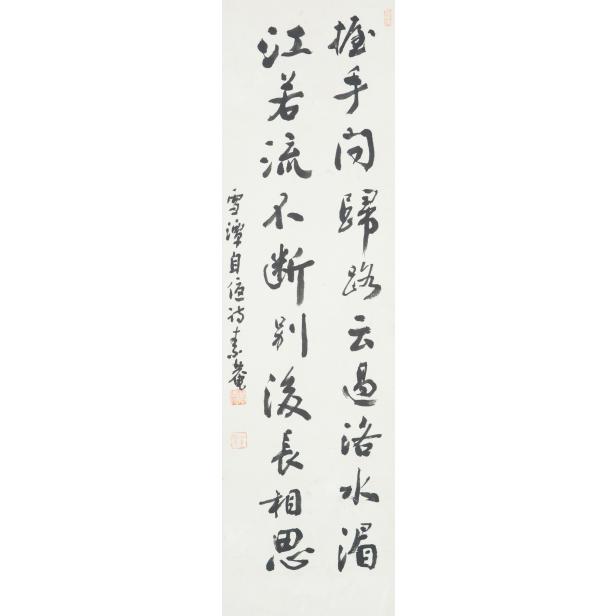 握手問歸路云過洛水湄
江若流不斷別後長相思
雪潭自優詩素菴